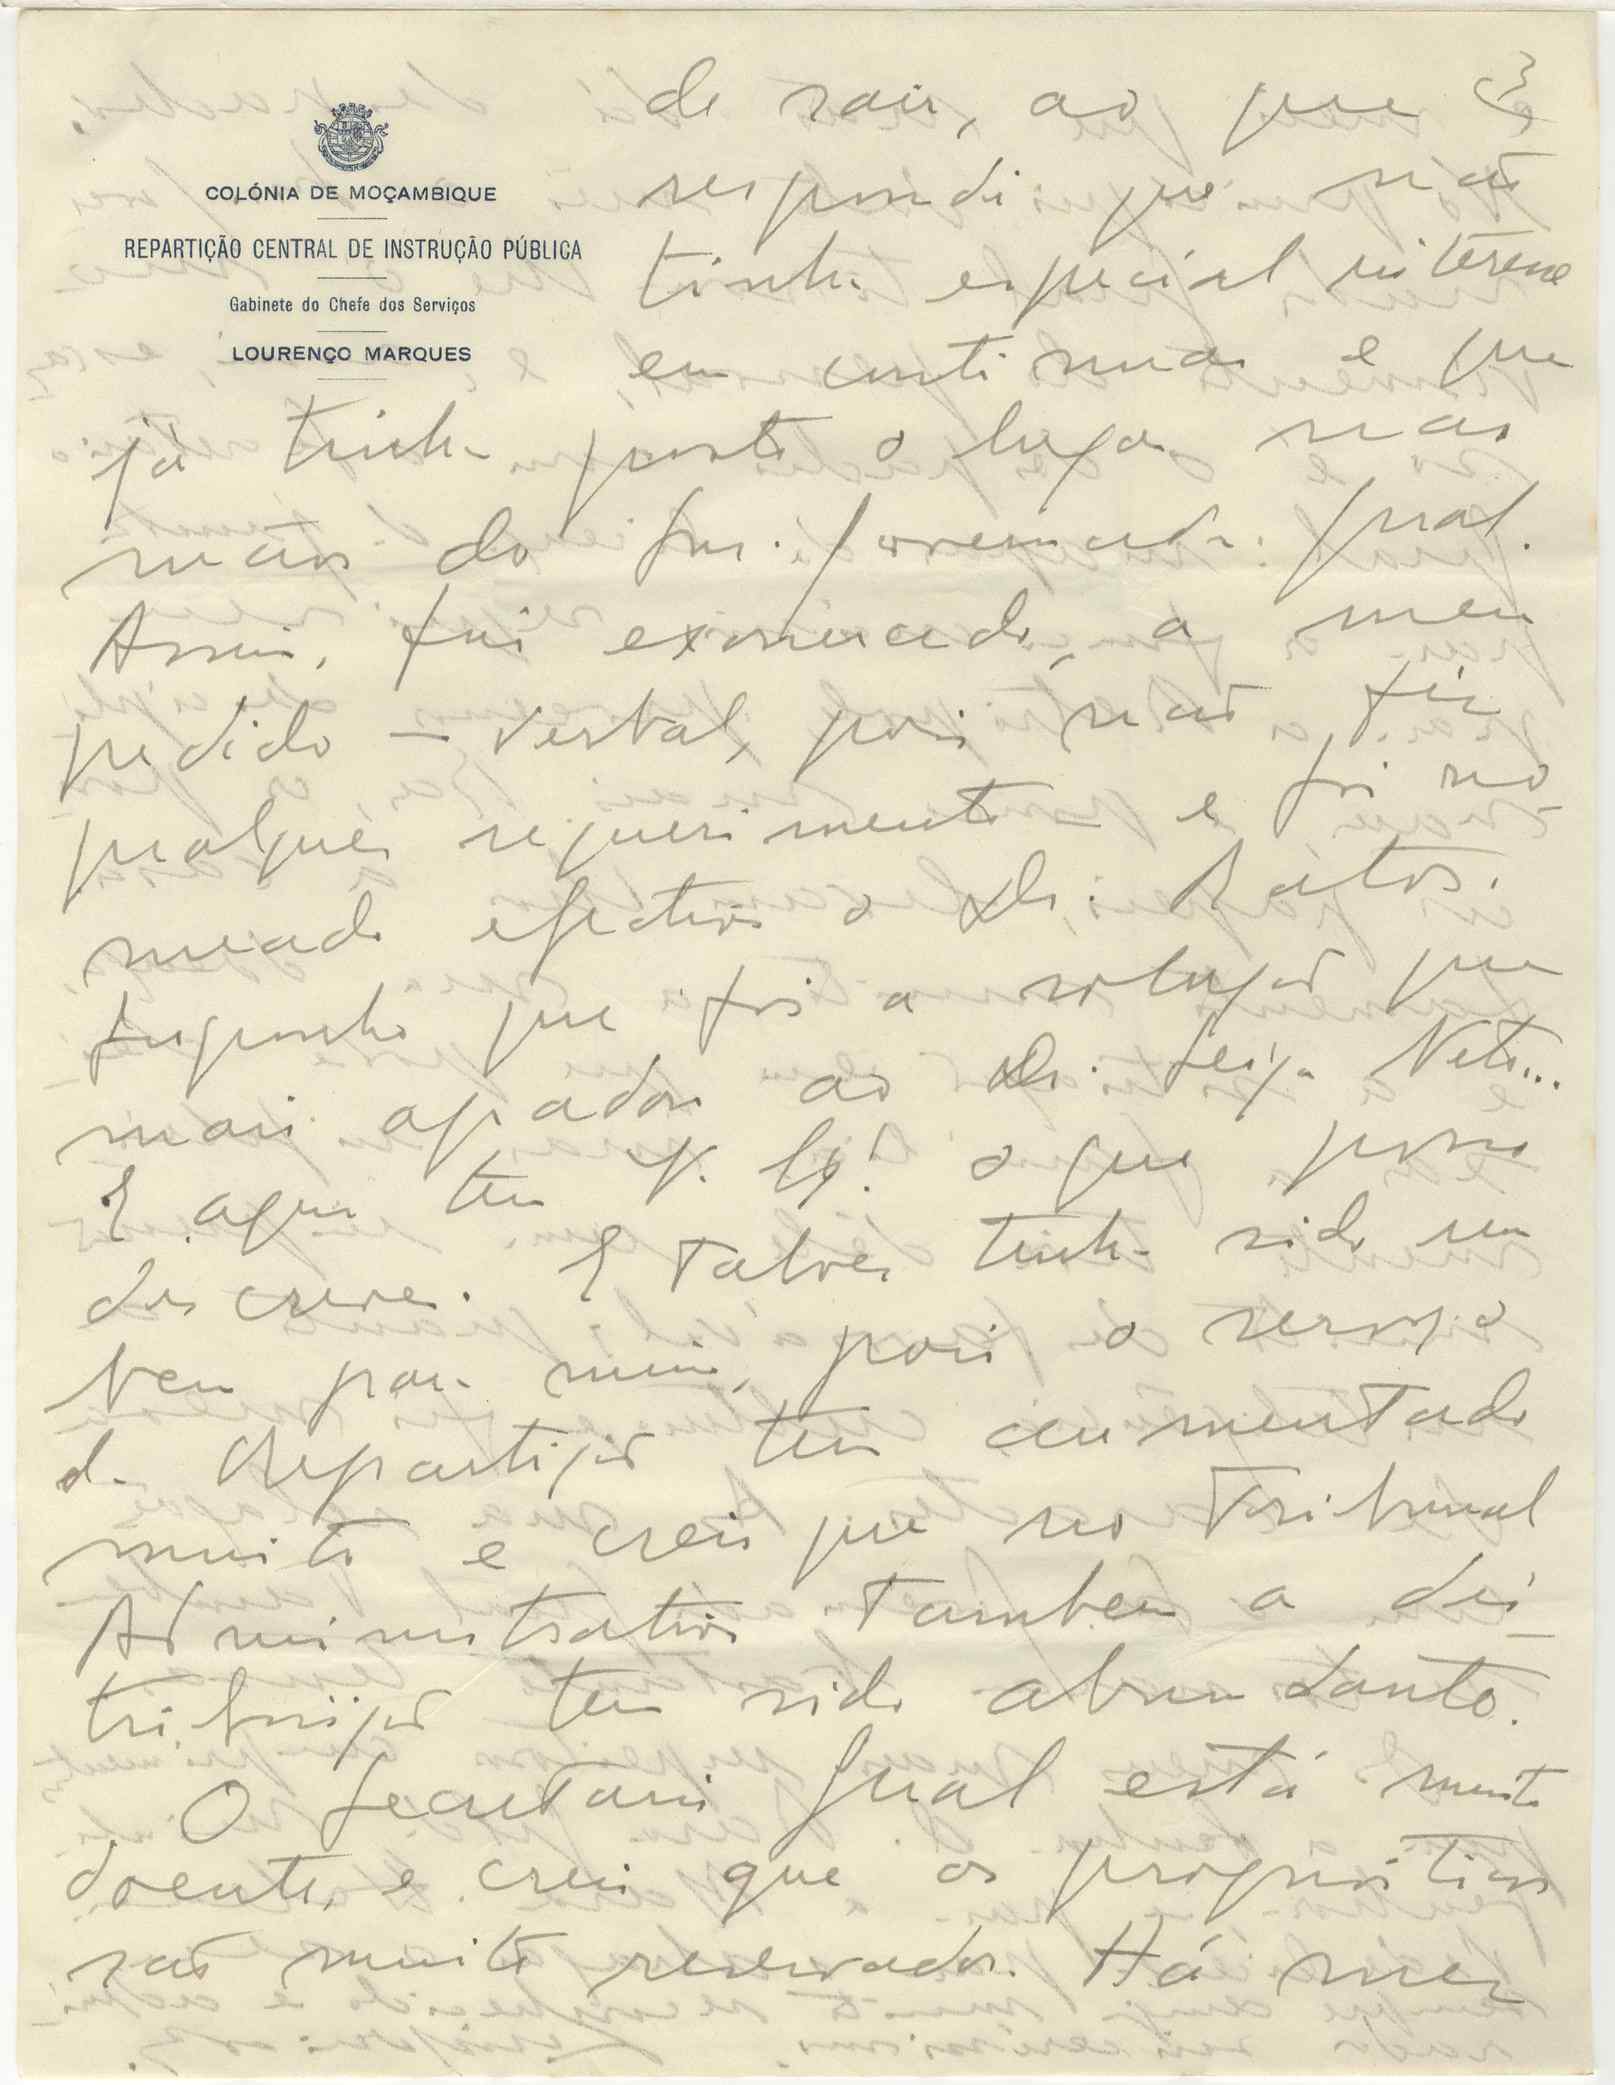 3
COLÓNIA DE MOÇAMBIQUE
REPARTIÇÃO CENTRAL DE INSTRUÇÃO PÚBLICA
Gabinete do Chefe dos Serviços
LOURENÇO MARQUES
de sair, ao que
respondi que não
tinha especial interesse
em continuar e que
já tinha posto o lugar nas
mãos do Snr. Governador Geral.
Assim, fui exonerado, a meu
pedido – verbal, pois não fiz
qualquer requerimento – e foi no-
meado efectivo o Dr. Ratos.
Suponho que foi a solução que
mais agradou ao Dr. Seiça Neto...
E aqui tem V. Exª o que posso
descrever. E talvez tenha sido um
bem para mim, pois o serviço
da Repartição tem aumentado
muito e creio que no Tribunal
Administrativo tambem a dis-
tribuïção tem sido abundante.
O Secretario Geral está muito
doente, e creio que os prognósticos
são muito reservados. Há mez